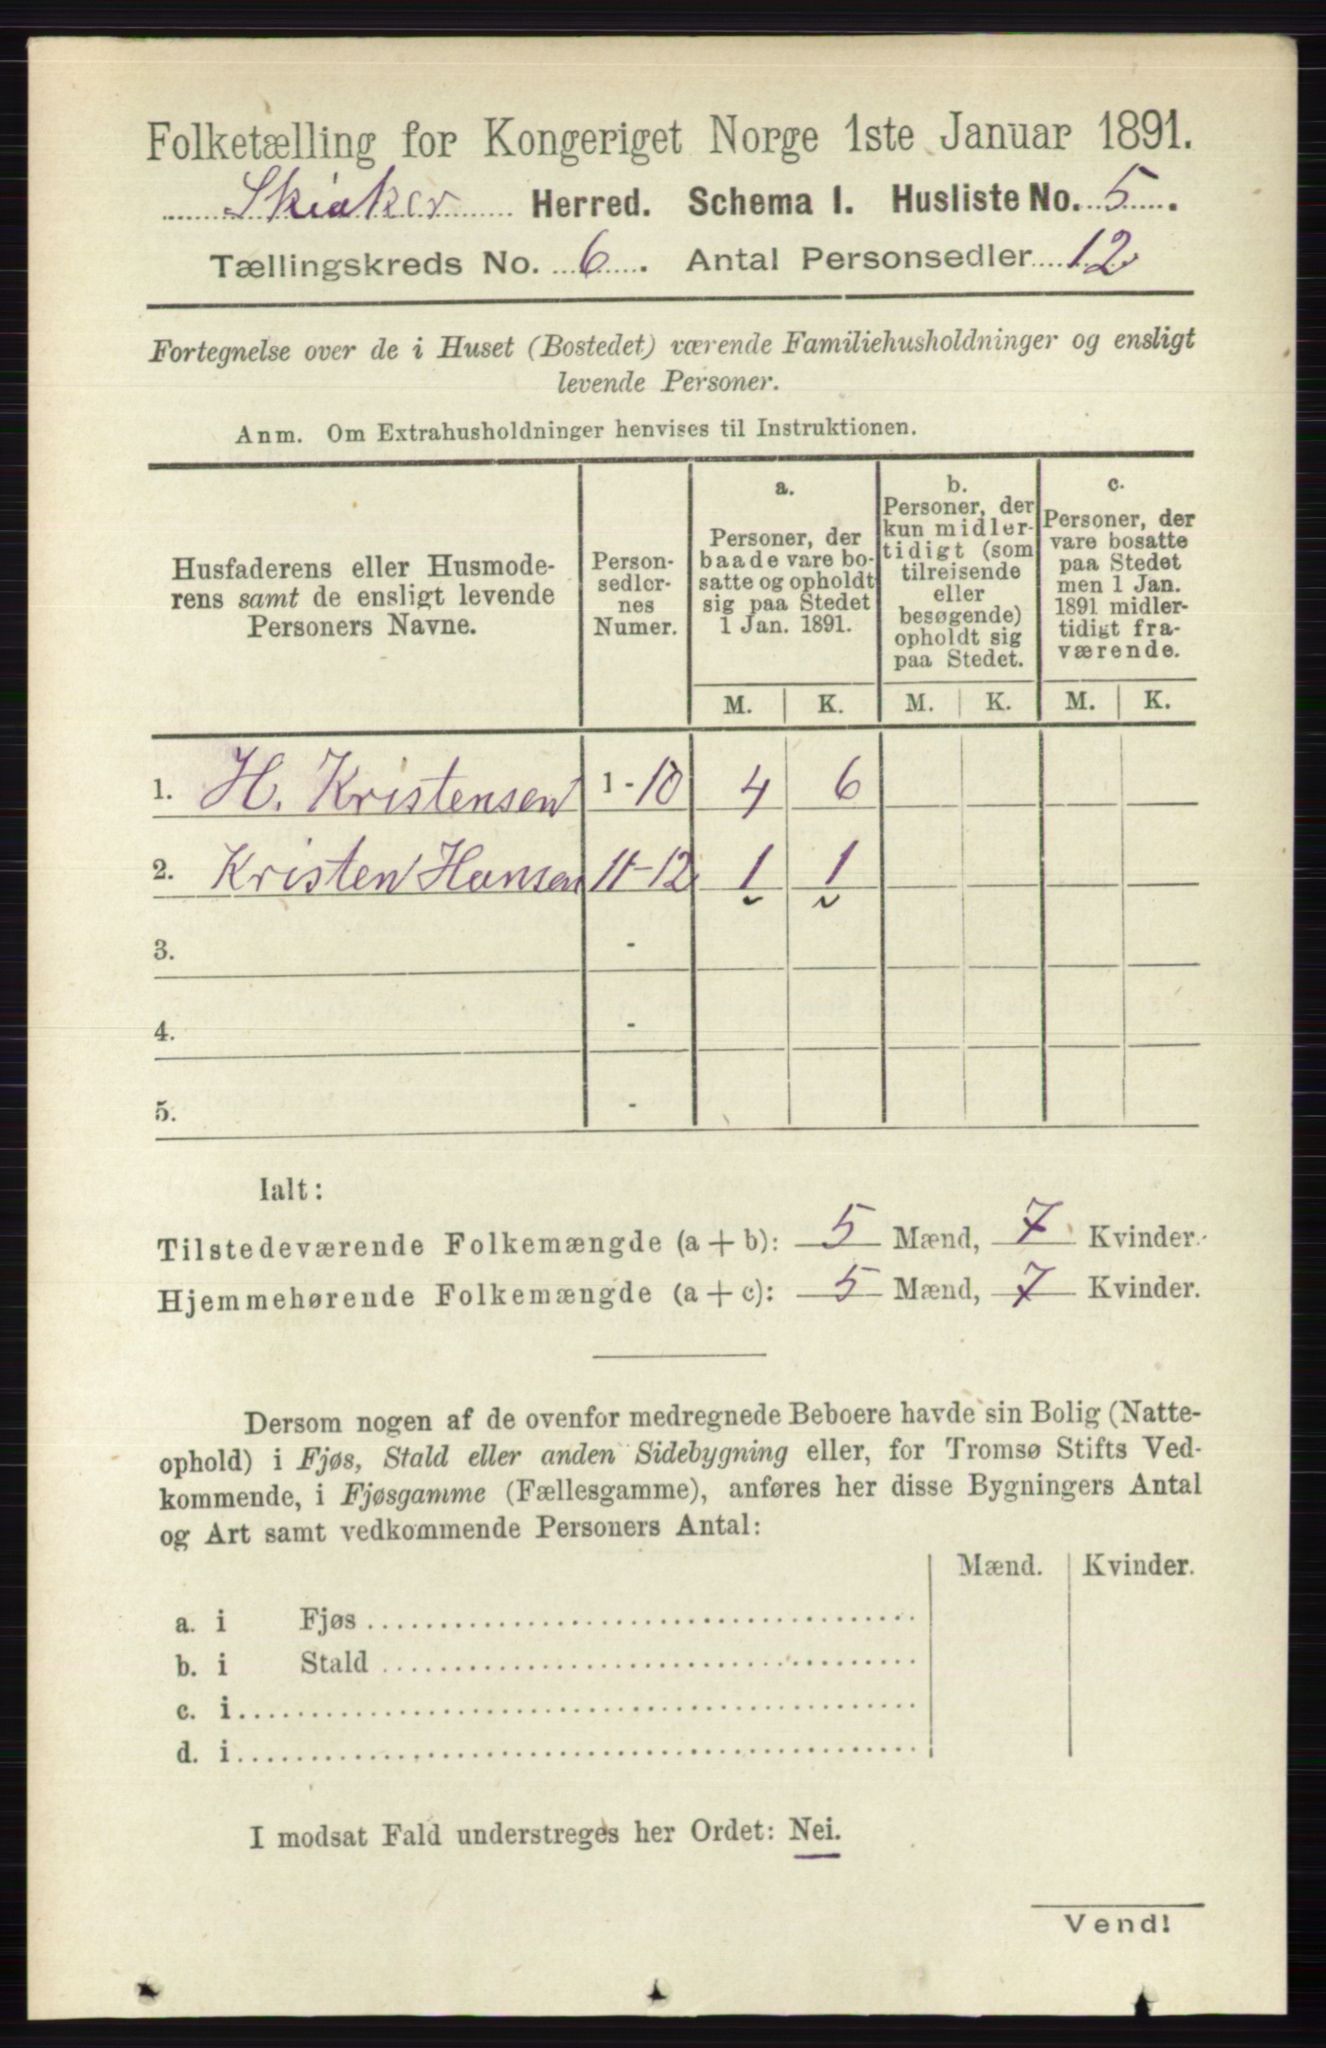 Folketælling for Kongeriget Norge 1ste Januar 1891.
Skiaker Herred. Schema I. Husliste No. 5.
Tællingskreds No. 6. Antal Personsedler 12
Fortegnelse over de i Huset (Bostedet) værende Familiehusholdninger og ensligt
levende Personer.
Anm. Om Extrahusholdninger henvises til Instruktionen.
Husfaderens eller Husmode-
rens samt de ensligt levende
Personers Navne.
Person-
sedler-
nes
Numer.
a.
Personer, der
baade vare bo-
satte og opholdt
sig paa Stedet
1 Jan. 1891.
b.
Personer, der
kun midler-
tidigt (som
tilreisende
eller
besøgende)
opholdt sig
paa Stedet.
c.
Personer, der
vare bosatte
paa Stedet
men 1 Jan.
1891 midler-
tidigt fra-
værende.
M. K. M. K. M. K.
1. H. Kristensen 1-10 4 6
2. Kristen Hansen 11-12 1 1
3. -
4. -
5. -
Ialt:
Tilstedeværende Folkemængde (a + b): 5 Mænd, 7 Kvinder.
Hjemmehørende Folkemængde (a + c): 5 Mænd, 7 Kvinder.
Dersom nogen af de ovenfor medregnede Beboere havde sin Bolig (Natte-
ophold) i Fjøs, Stald eller anden Sidebygning eller, for Tromsø Stifts Ved-
kommende, i Fjøsgamme (Fællesgamme), anføres her disse Bygningers Antal
og Art samt vedkommende Personers Antal:
Mænd. Kvinder.
a. i Fjøs
b. i Stald
c. i
d. i
I modsat Fald understreges her Ordet: Nei.
Vend!